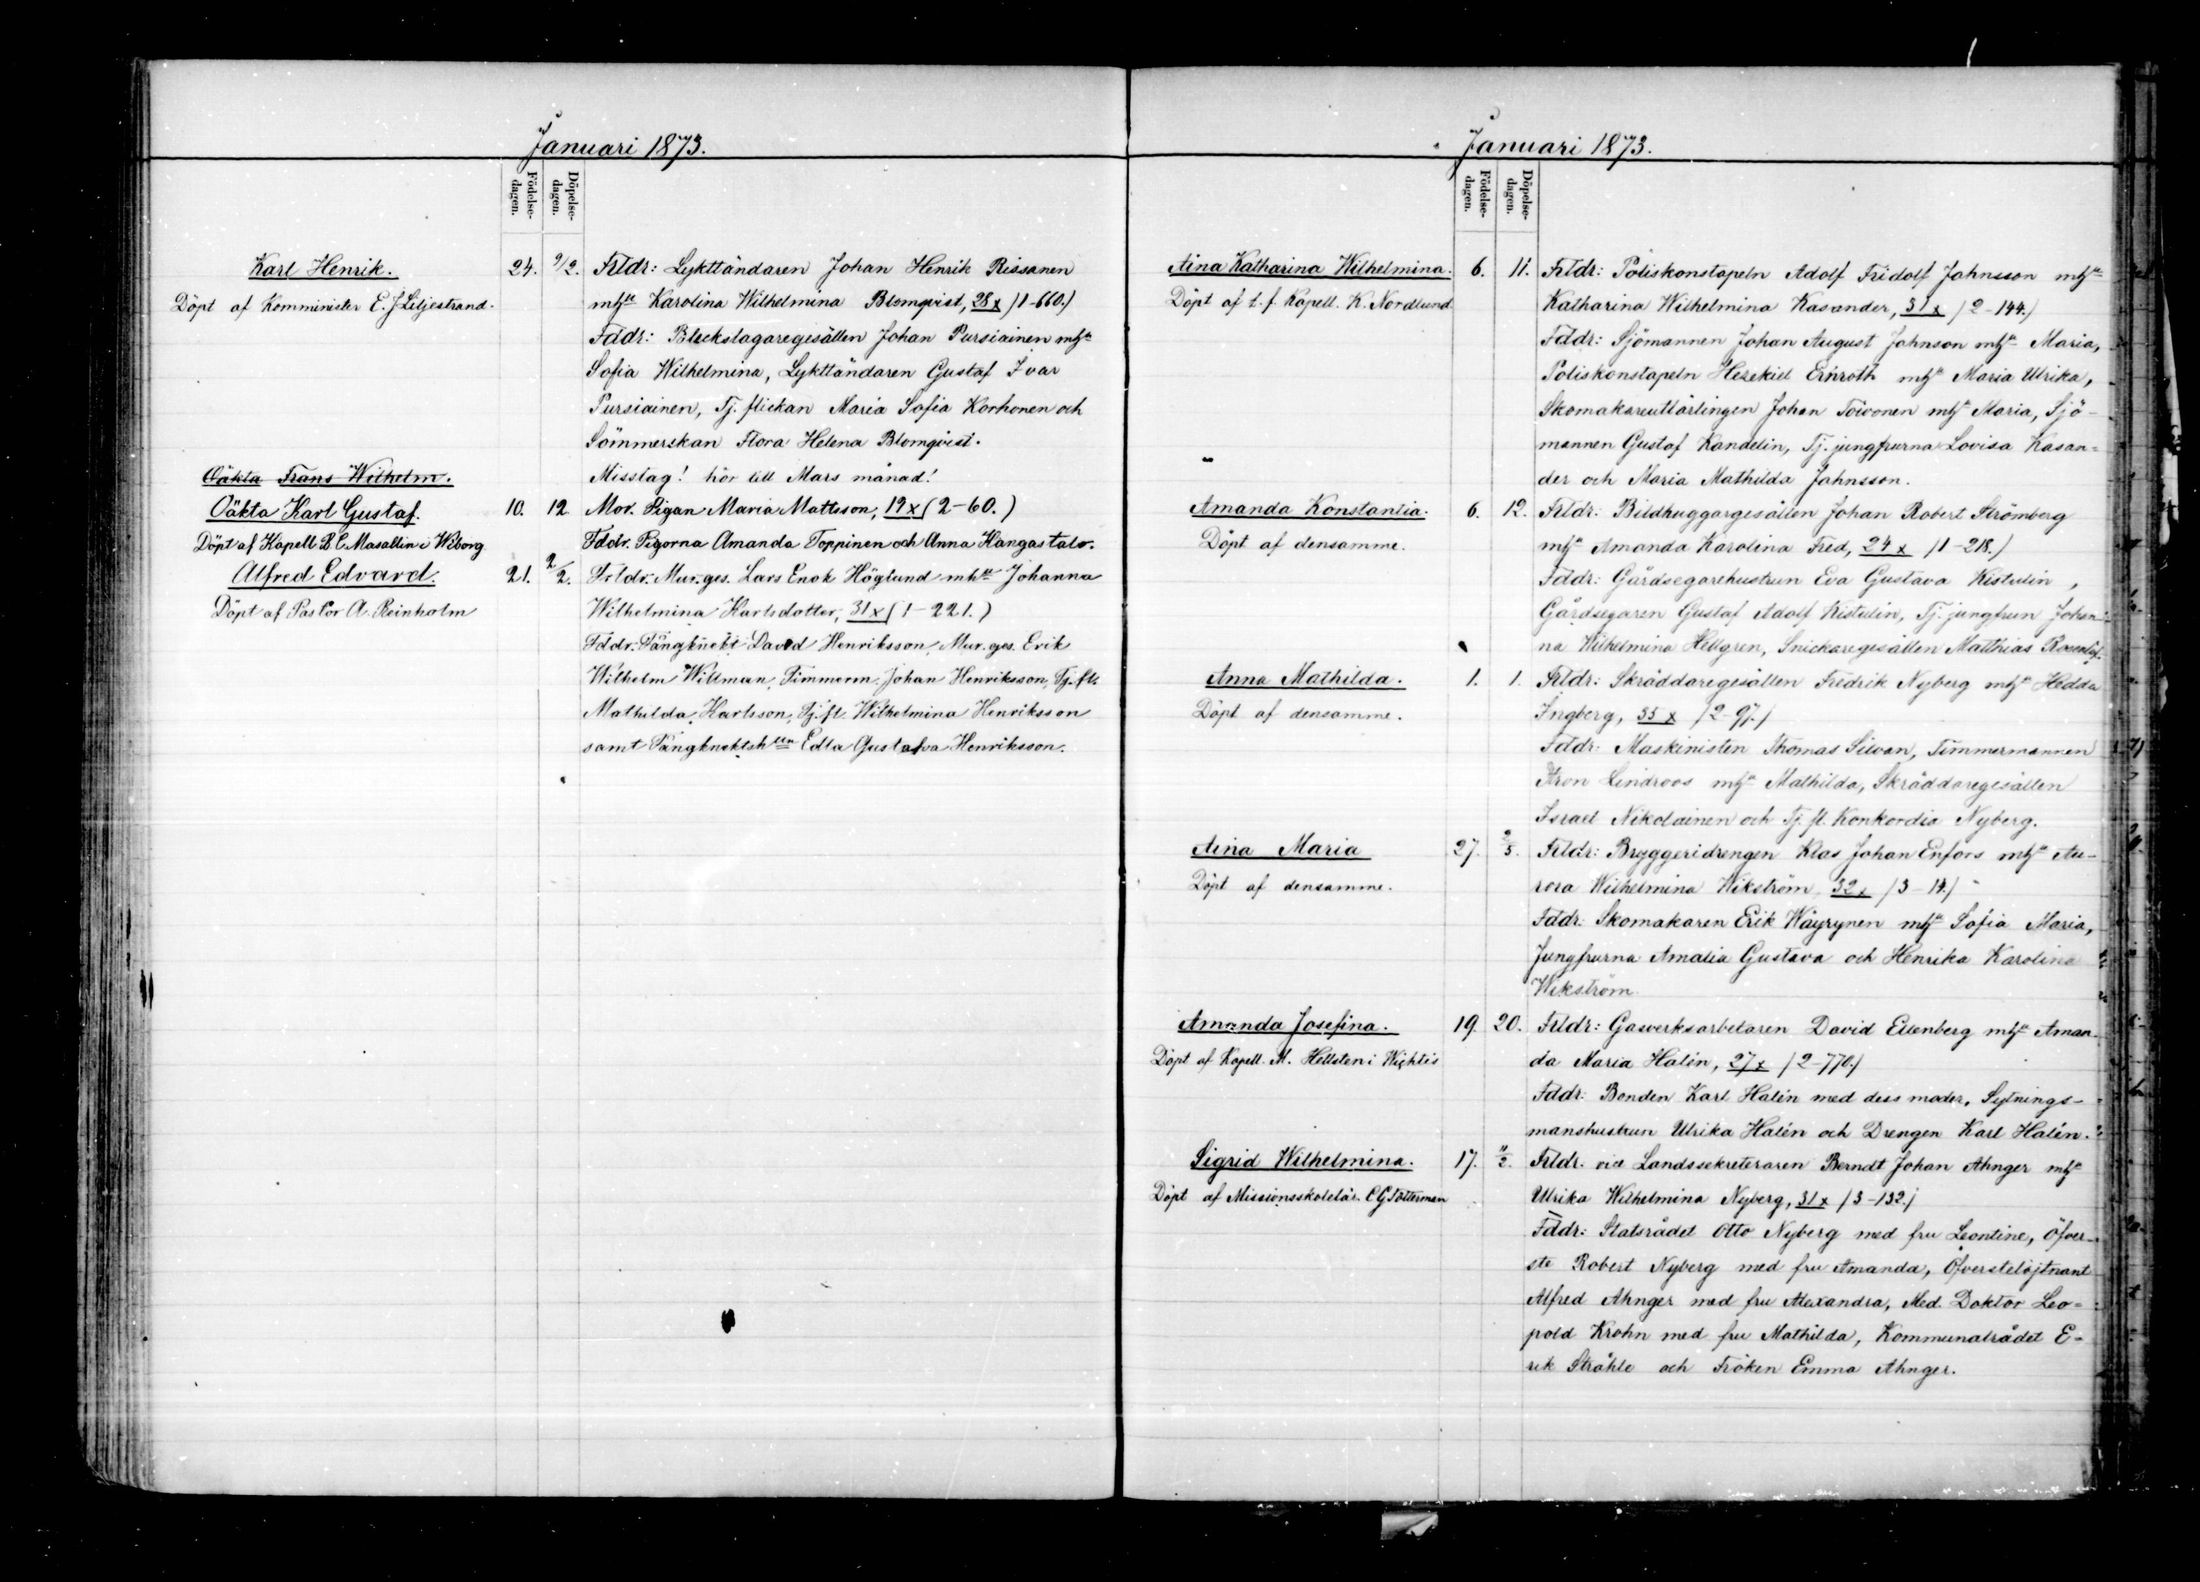 Januari 1873.
Födelse-
dagen.
Döpelse-
dagen.
Karl Henrik. 24. 9/2. Frldr: Lykttändaren Johan Henrik Rissanen
Döpt af Komminister E. J. Liljestrand. mhu Karolina Wilhelmina Blomqvist, 28 x /1-660./
Fddr: Bleckslagaregesällen Johan Pursiainen mhu
Sofia Wilhelmina, Lykttändaren Gustaf Ivar
Pursiainen, Tj. flickan Maria Sofia Korhonen och
Sömmerskan Flora Helena Blomqvist.
Oäkta Frans Wilhelm. Misstag! hör till Mars månad!
Oäkta Karl Gustaf. 10. 12. Mor. Pigan Maria Mattsson, 19 x (2-60.)
Döpt af Kapell. B. C. Masallin i Wiborg Fddr. Pigorna Amanda Toppinen och Anna Kangastalo.
Alfred Edvard. 21. 2/2. Frldr. Mur. ges. Lars Enok Höglund mhu Johanna
Döpt af Pastor A. Reinholm Wilhelmina Karlsdotter, 31 x (1-221.)
Fddr. Fångknekt David Henriksson, Mur. ges. Erik
Wilhelm Willman, Timmerm. Johan Henriksson, Tj. fl.
Mathilda Karlsson, Tj. fl. Wilhelmina Henriksson
samt Fångknektshun Edla Gustafva Henriksson.
Januari 1873.
Födelse-
dagen.
Döpelse-
dagen.
Aina Katharina Wilhelmina. 6. 11. Frldr: Poliskonstapeln Adolf Fridolf Johnsson mhu
Döpt af t. f. Kapell. K. Nordlund Katharina Wilhelmina Kasander, 31 x /2-144./
Fddr: Sjömannen Johan August Johnson mhu Maria,
Poliskonstapeln Hesekiel Ernroth mhu Maria Ulrika,
Skomakareutlärlingen Johan Toivonen mhu Maria, Sjö-
mannen Gustaf Kandelin, Tj. jungfrurna Lovisa Kasan-
der och Maria Mathilda Johnsson.
Amanda Konstantia. 6. 12. Frldr: Bildhuggargesällen Johan Robert Strömberg
Döpt af densamme. mhu Amanda Karolina Fred, 24 x /1-218./
Fddr: Gårdsegarehustrun Eva Gustava Kistulin,
Gårdsegaren Gustaf Adolf Kistulin, Tj. jungfrun Johan-
na Wilhelmina Hellgren, Snickaregesällen Matthias Rosenlöf.
Anna Mathilda. 1. 1. Frldr: Skräddaregesällen Fredrik Nyberg mhu Hedda
Döpt af densamme. Ingberg, 35 x /2-97./
Fddr: Maskinisten Thomas Silvan, Timmermannen
Aron Lindroos mhu Mathilda, Skräddaregesällen
Israel Nikolainen och Tj. fl. Konkordia Nyberg.
Aina Maria 27. 2/5. Frldr: Bryggeridrengen Klas Johan Enfors mhu Au-
Döpt af densamme. rora Wilhelmina Wikström 32 x /3-14./
Fddr: Skomakaren Erik Wäyrynen mhu Sofia Maria,
Jungfrurna Amalia Gustava och Henrika Karolina
Wikström.
Amanda Josefina. 19. 20. Frldr: Gasverksarbetaren David Eilenberg mhu Aman-
Döpt af Kapell. A. Hellsten i Wichtis da Maria Halén, 27 x /2-770./
Fddr: Bonden Karl Halén med dess moder, Sytnings-
manshustrun Ulrika Halén och Drengen Karl Halén.
Sigrid Wilhelmina. 17. 11/2. Frldr. vice Landssekreteraren Berndt Johan Ahnger mhu
Döpt af Missionsskolelär. C G Tötterman Ulrika Wilhelmina Nyberg, 31 x /3-132./
Fddr: Statsrådet Otto Nyberg med fru Leontine, Öfver-
ste Robert Nyberg med fru Amanda, Öfverstelöjtnant
Alfred Ahnger med fru Alexandra, Med. Doktor Leo-
pold Krohn med fru Mathilda, Kommunalrådet E-
rik Stråhle och Fröken Emma Ahnger.